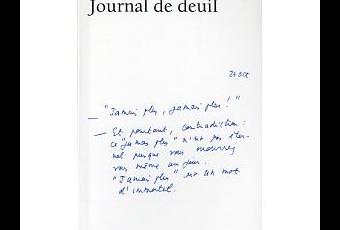 Journal de deuil
27 oct
— "Jamais plus, jamais plus !"
— Et pourtant, contradiction :
ce "jamais plus" n'est pas éter-
nel puisque vous mourrez
vous-même un jour.
"Jamais plus" est un mot
d'immortel.